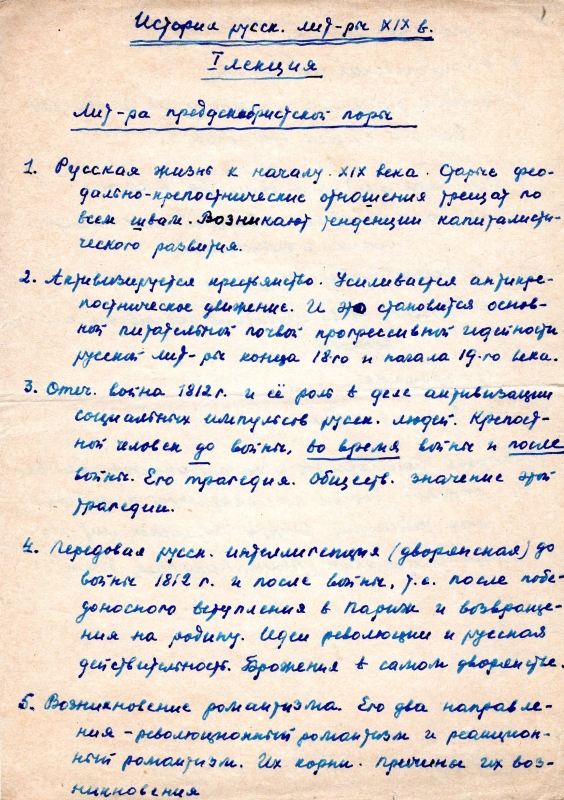 История русск. лит-ры XIX в.
I лекция
Лит-ра преддекабристской поры
1. Русская жизнь к началу XIX века. Старые фео-
дально-крепостнические отношения трещат по
всем швам. Возникают тенденции капиталисти-
ческого развития.
2. Активизируется крестьянство. Усиливается антикре-
постническое движение. И это становится основ-
ной питательной почвой прогрессивной идейности
русской лит-ры конца 18-го и начала 19-го века.
3. Отеч. война 1812 г. и её роль в деле активизации
социальных импульсов русск. людей. Крепост-
ной человек до войны, во время войны и после
войны. Его трагедия. Обществ. значение этой
трагедии.
4. Передовая русск. интеллигенция (дворянская) до
войны 1812 г. и после войны, т.е. после побе-
доносного вступления в Париж и возвраще-
ния на родину. Идеи революции и русская
действительность. Брожения в самом дворянстве.
5. Возникновение романтизма. Его два направле-
ния - революционный романтизм и реакцион-
ный романтизм. Их корни. Причины их воз-
никновения